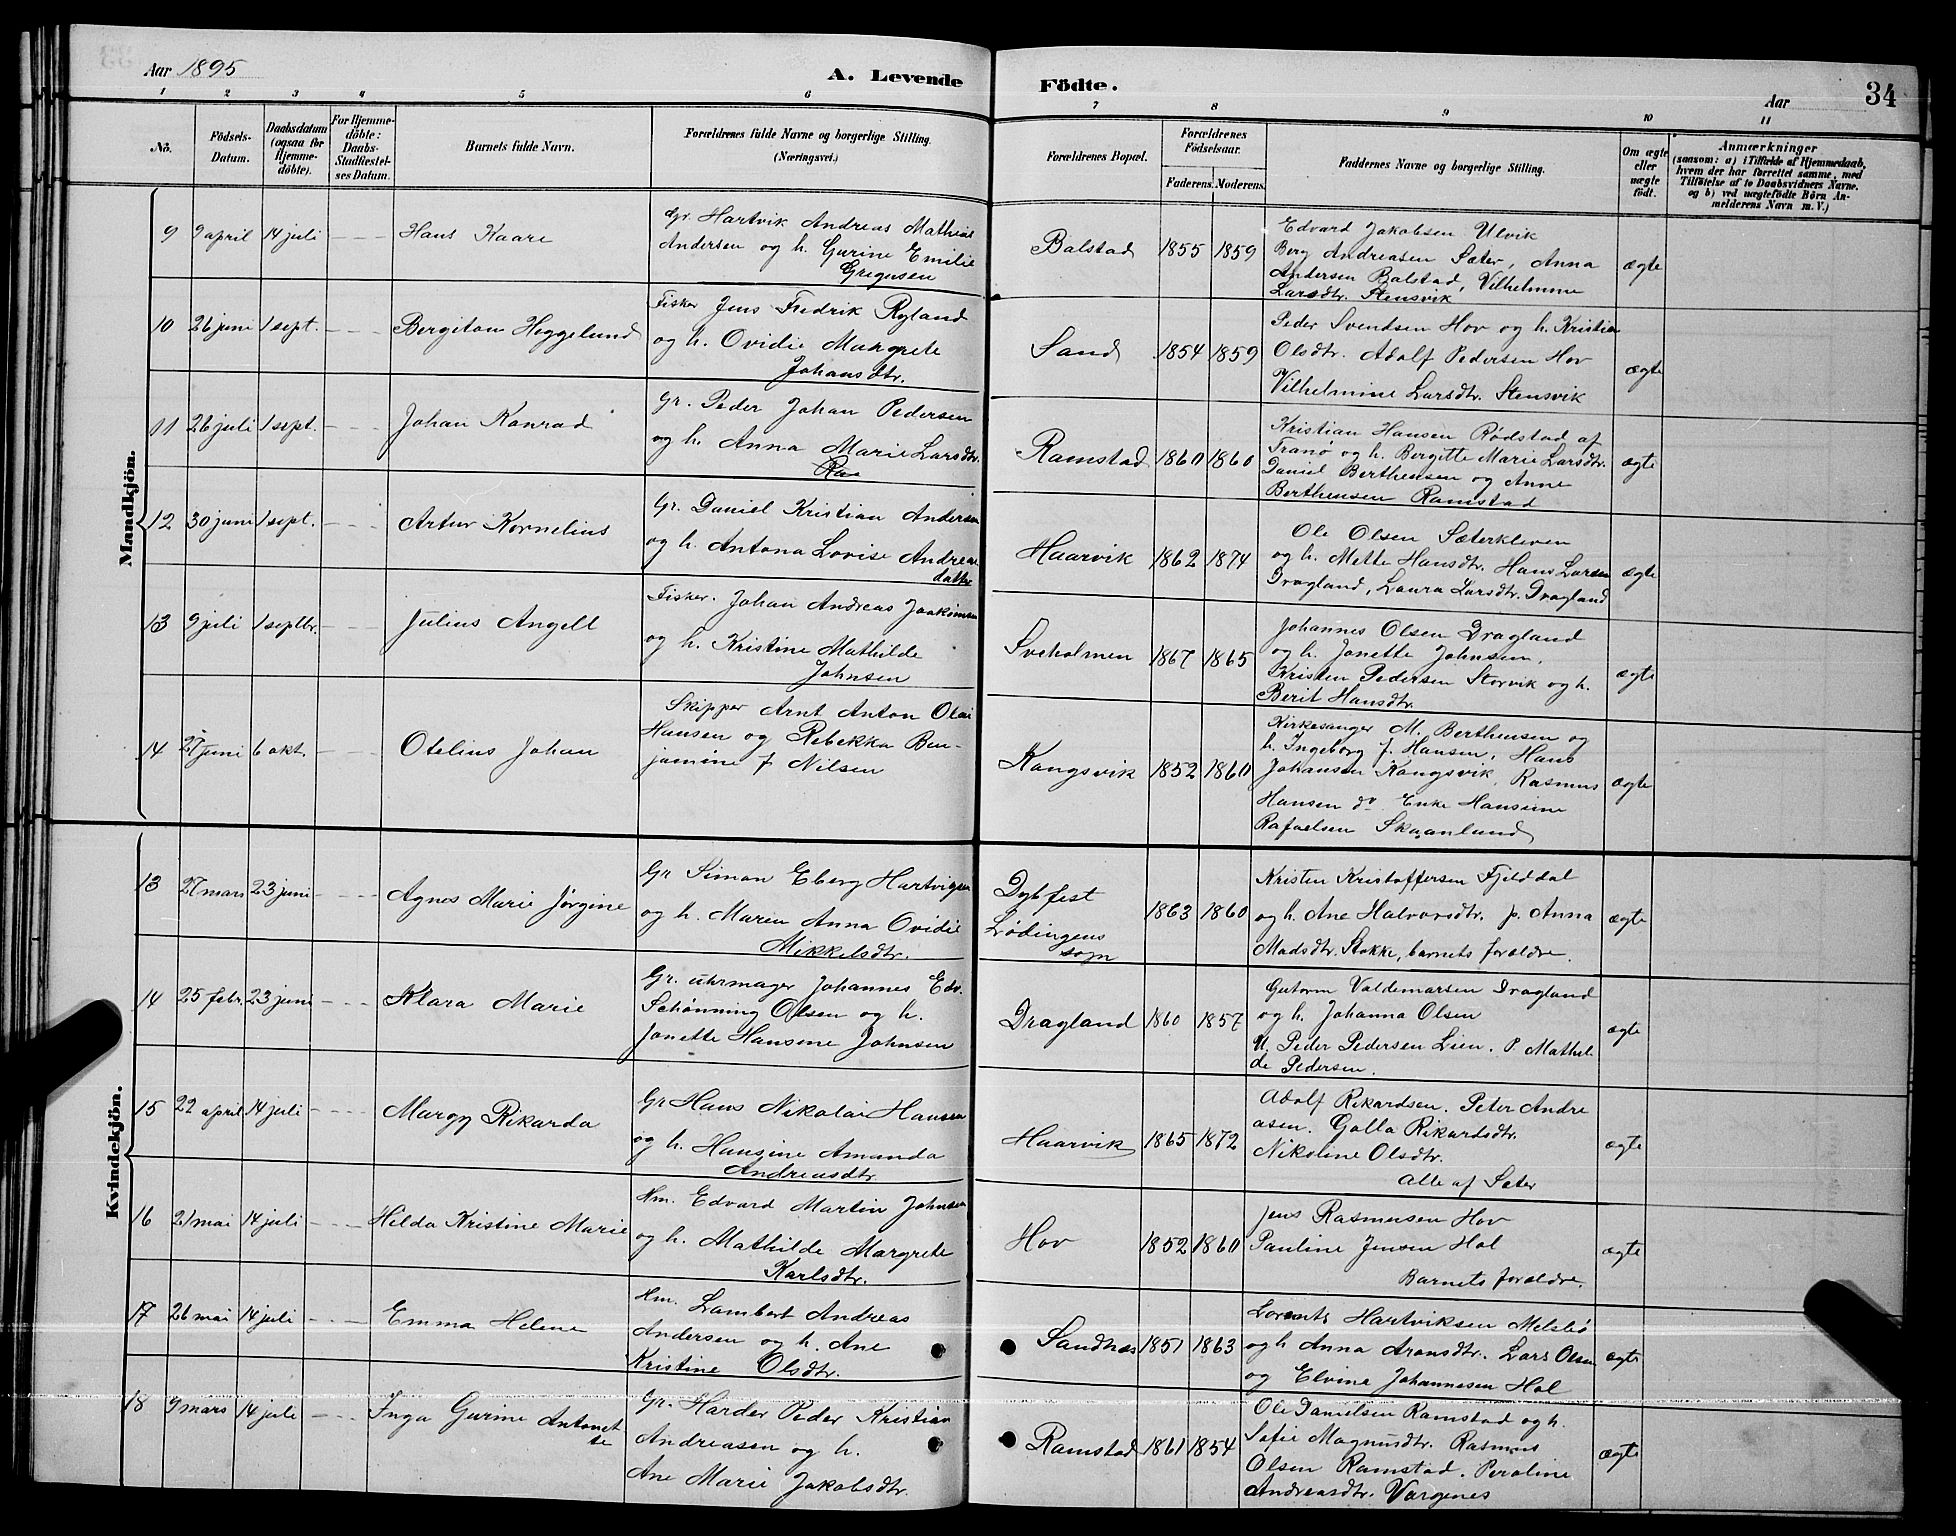 Aar 1895
A. Levende
Fødte.
Aar
34
1 2 3 4 5 6 7 8 9 10 11
No.
Fødsels-
Datum.
Daabsdatum
(ogsaa for
Hjemme-
døbte).
For Hjemme-
døbte:
Daabs-
Stadfæstel-
ses Datum.
Barnets fulde Navn.
Forældrenes fulde Navne og borgerlige Stilling.
(Næringsvei.)
Forældrenes Bopæl.
Forældrenes
Fødselsaar.
Faderens. Moderens.
Faddernes Navne og borgerlige Stilling.
Om ægte
eller
uægte
født.
Anmærkninger
(saasom: a) i Tilfælde af Hjemmedaab,
hvem der har forrettet samme, med
Tilføielse af to Daabsvidners Navne.
og b) ved uægtefødte Børn An-
melderens Navn m.V.)
Mandkjøn.
9 9 april 14 juli Hans Kaare
Gr. Hartvik Andreas Mathias
Andersen og h. Gurine Emilie
Gregusen
Balstad 1855 1859
Edvard Jakobsen Ulvik
Berg Andreasen Sæter, Anna
Andersen Balstad, Vilhelmine
Larsdtr. Stensvik
ægte
10 26 juni 1 sept. Bergiton Heggelund
Fisker Jens Fredrik Ryland
og h. Ovidie Margrete
Johansdtr.
Sand 1854 1859
Peder Svendsen Hov og h. Kristin
Olsdtr. Adolf Pedersen Hov
Vilhelmine Larsdtr. Stensvik
ægte
11 26 juli 1 sept. Johan Konrad
Gr. Peder Johan Pedersen
og h. Anna Marie Larsdtr.
Ramstad 1860 1860
Kristian Hansen Rødstad af
Tranø og h. Bergitte Marie Larsdtr.
Daniel Berthensen og Anne
Berthensen Ramstad
ægte
12 30 juni 1 sept. Artur Kornelius
Gr. Daniel Kristian Andersen
og h. Antona Lovise Andreas
datter
Haarvik 1862 1874
Ole Olsen Sæterkleven
og h. Mette Hansdtr. Hans Larsen
Dragland, Laura Larsdtr. Dragland
ægte
13 9 juli 1 septbr. Julius Angell
Fisker. Johan Andreas Joakimsen
og h. Kristine Mathilde
Johnsen
Sveholmen 1867 1865
Johannes Olsen Dragland
og h. Jonette Johnsen.
Kristen Pedersen Storvik og h.
Berit Hansdtr.
ægte
14 27 juni 6 okt. Otelius Johan
Skipper Arnt Anton Olai
Hansen og Rebekka Ben-
jamine f. Nilsen
Kongsvik 1852 1860
Kirkesanger M. Berthensen og
h. Ingeborg f. Hansen, Hans
Johansen Kongsvik, Rasmus
Hansen do Enke Hansine
Rafaelsen Skaanlund
ægte
Kvindekjøn.
13 27 mars 23 juni Agnes Marie Jørgine
Gr Simon Eberg Hartvigsen
og h. Maren Anna Ovidie
Mikkelsdtr.
Dybfest
Lødingens
sogn
1863 1860
Kristen Kristoffersen Fjelddal
og h. Ane Halvorsdtr. p. Anna
Madsdtr. Stokke, barnets forældre.
ægte
14 25 febr. 23 juni Klara Marie
Gr. uhrmager Johannes Edv.
Schønning Olsen og h.
Jonette Hansine Johnsen
Dragland 1860 1857
Gutorm Valdemarsen Dragland
og h. Johanna Olsen
U. Peder Pedersen Lien. P. Mathil-
de Pedersen.
ægte
15 22 april 14 juli Margy Rikarda
Gr Hans Nikolai Hansen
og h. Hansine Amanda
Andreasdtr.
Haarvik 1865 1872
Adolf Rikardsen. Peter Andre
asen. Golla Rikardsdtr.
Nikoline Olsdtr.
Alle af Sæter
ægte
16 21 mai 14 juli Hilda Kristine Marie
Hm. Edvard Martin Johnsen
og h. Mathilde Margrete
Karlsdtr.
Hov 1852 1860
Jens Rasmussen Hov
Pauline Jensen Hol
Barnets forældre.
ægte
17 26 mai 14 juli Emma Helene
Hm. Lambert Andreas
Andersen og h. Ane
Kristine Olsdtr.
Sandnes 1851 1863
Lorents Hartviksen Melsbø
og h Anna Aronsdtr. Lars Olsen
og Elvine Johannesen Hol
ægte
18 9 mars 14 juli Inga Gurine Antonet
te
Gr. Harder Peder Kristian
Andreasen og h.
Ane Marie Jakobsdtr.
Ramstad 1861 1854
Ole Danielsen Ramstad og h.
Sofie Magnusdtr. Rasmus
Olsen Ramstad. Peroline
Andreasdtr. Vargenes
ægte